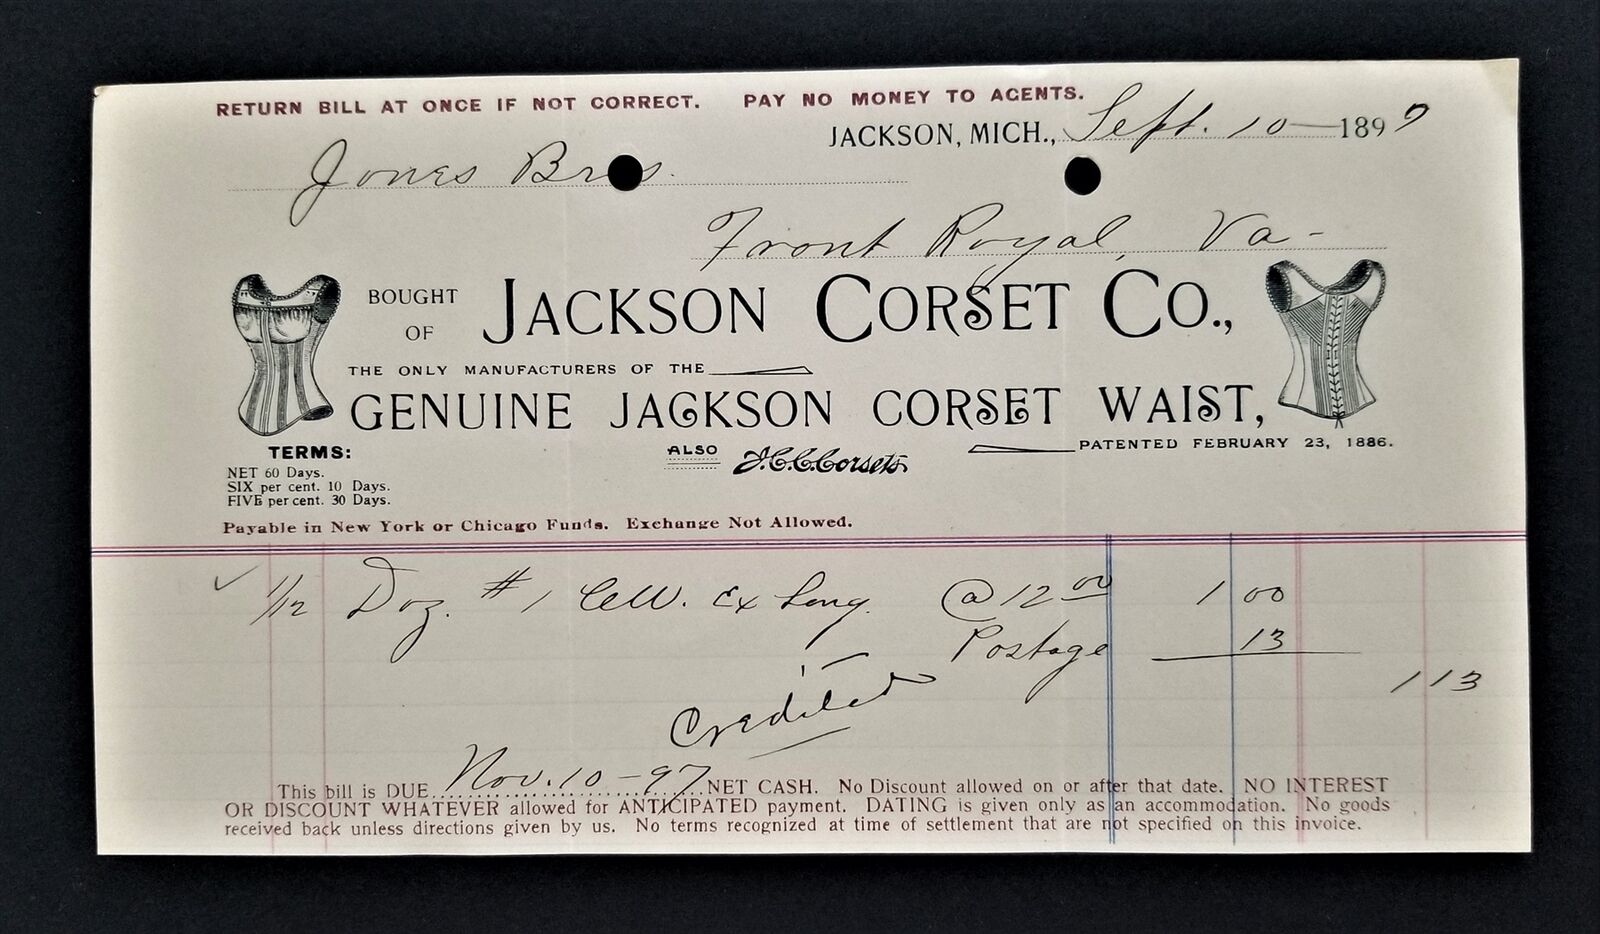 RETURN BILL AT ONCE IF NOT CORRECT. PAY NO MONEY TO AGENTS.
JACKSON, MICH., Sept. 10 — 1897
Jones Bros.
Front Royal, Va -
BOUGHT OF JACKSON CORSET CO.,
THE ONLY MANUFACTURERS OF THE
GENUINE JACKSON CORSET WAIST,
PATENTED FEBRUARY 23, 1886.
ALSO J.C.C. Corsets.
TERMS:
NET 60 Days.
SIX per cent. 10 Days.
FIVE per cent. 30 Days.
Payable in New York or Chicago Funds. Exchange Not Allowed.
✓ 1/12 Doz. #1 CW. Ex Long. @ 12 00 1 00
Postage 13
1 13
Credited
This bill is DUE Nov. 10 - 97 NET CASH. No Discount allowed on or after that date. NO INTEREST
OR DISCOUNT WHATEVER allowed for ANTICIPATED payment. DATING is given only as an accommodation. No goods
received back unless directions given by us. No terms recognized at time of settlement that are not specified on this invoice.